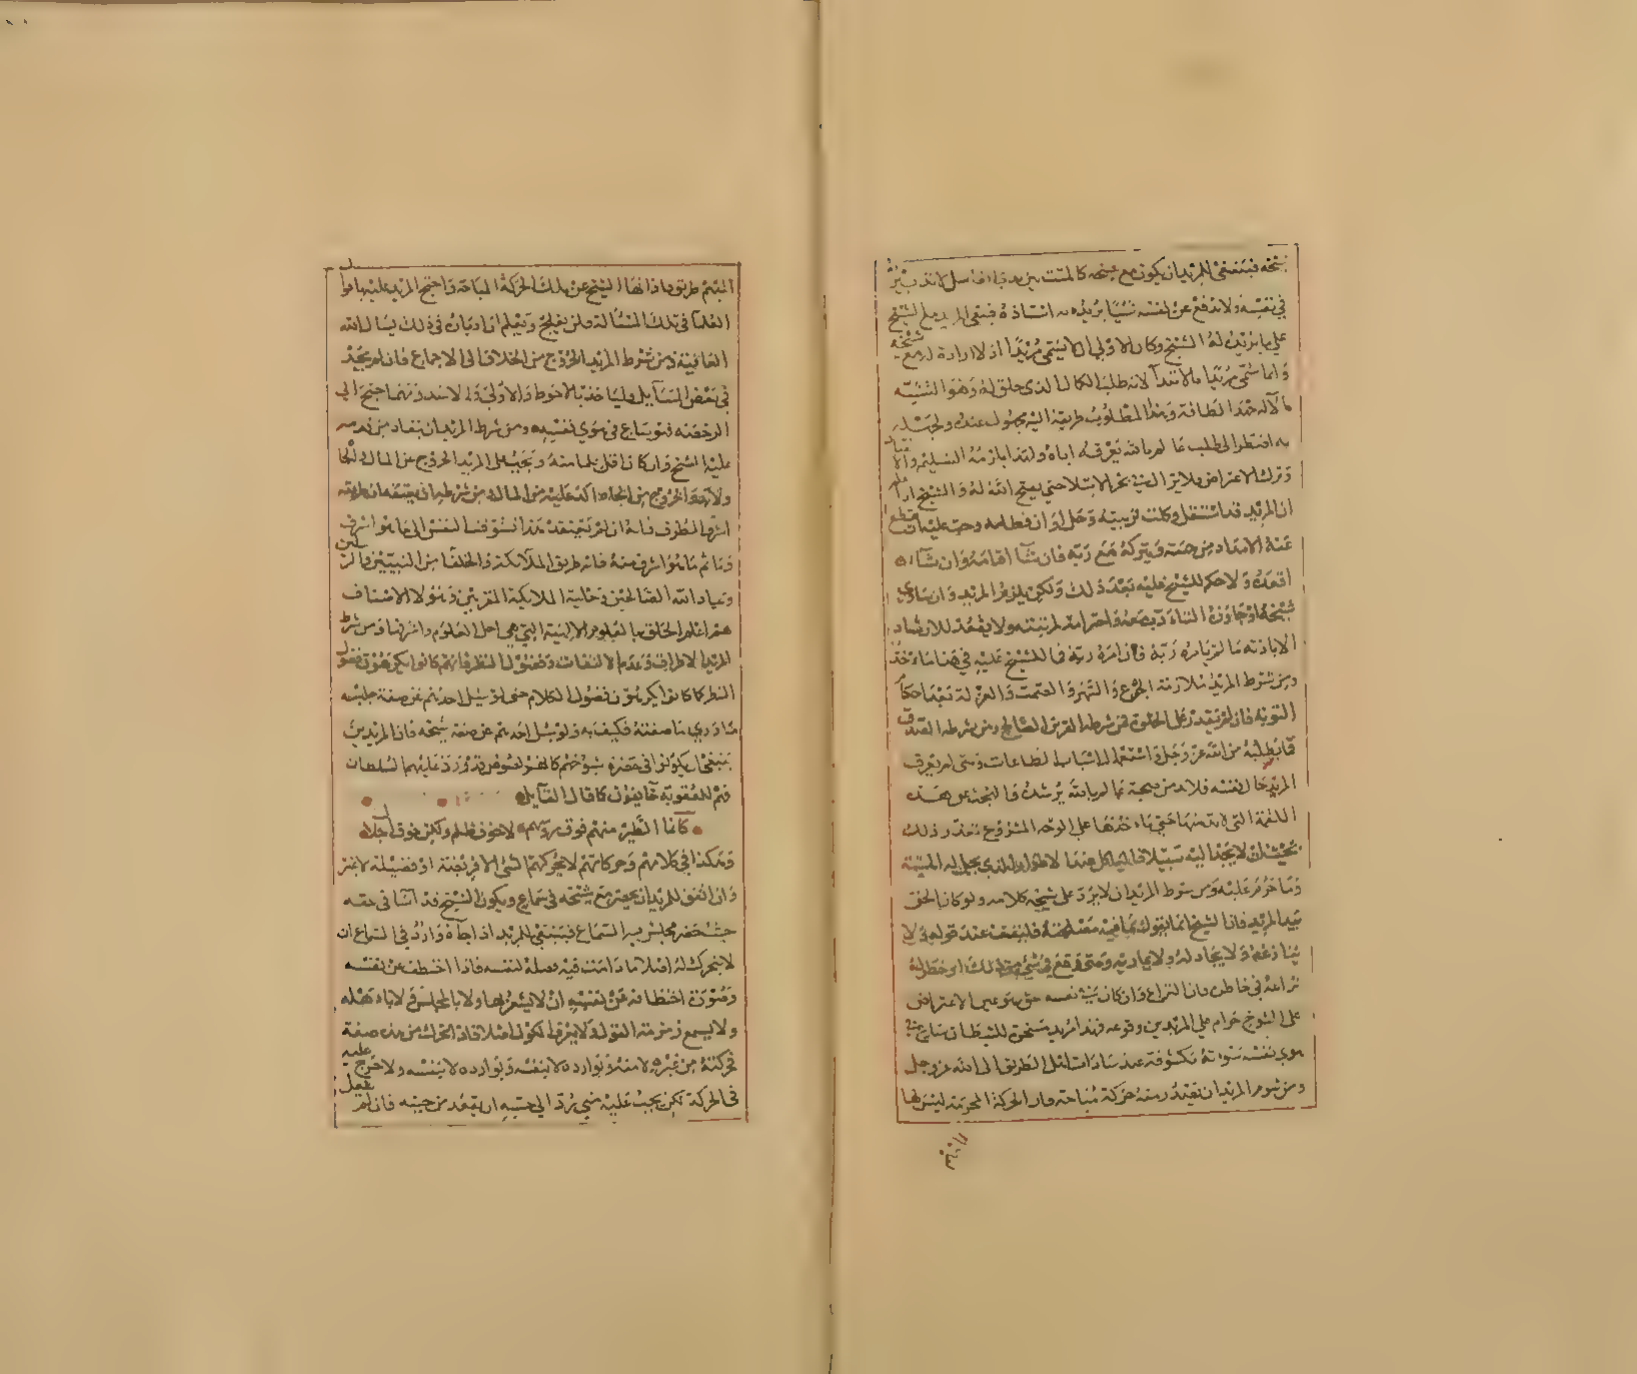 شيخه فينبغي للمريد ان يكون مع شيخه كالميت بين يدي الغاسل لا تدبير له
في نفسه ولا يدفع عن نفسه شيئا يريده به استاذه فيبقى المريد مع الشيخ
على ما يريده له الشيخ وكان الاولى ان لا يسمى مريدا اذ لا ارادة له مع شيخه
وانما سمى مريدا بالابتدآ لانه طلب الكمال الذي خلق له وهو التشبه
بالاله جهد الطاقة وهذا المطلوب طريقه اليه مجهول عنده ولجهله
به افتقر الى طلب عالم بالله يعرفه اياه ولهذا يلزمه التسليم
وترك الاعتراض ولا يزال في بحر الابتلا حتى يفتح الله له والشيخ اذا علم
ان المريد قد استقل وكملت تربيته وحل اوان فطامه وجب عليه ان يقطع
عنه الامداد من جهته ويتركه مع ربه فان شآ اقامه وان شآ
اقعده ولا حكم للشيخ عليه بعد ذلك ولكن يلزم المريد وان ساوى
شيخه او جاوزه التادب معه واحترامه لمرتبته ولا يقعد للارشاد
الا باذنه ما لم يامره ربه فان امره ربه فما للشيخ عليه في هذا ماخذ
ومن شرط المريد ملازمة الجوع والسهر والصمت والعزلة بعد احكام
التوبة فان لم يقدر على الخلوة فمن شرطه القرين الصالح ومن شرطه الصدق
فيما يطلبه من الله عز وجل واستعمال اسباب الطاعات ومتى لم يعرف
المريد حال نفسه فلابد من صحبة عالم بالله يرشده فالبحث عن هذه
اللقمة التي لابد منها حتى ياخذها على الوجه المشروع فان تعذر ذلك
بحيث ان لا يجد اليه سبيلا فلياكل عند الاضطرار الذي يحل له الميتة
وما حرم عليه ومن شرط المريد ان لا يرد على شيخه كلامه ولو كان الحق
بيد المريد فان الشيخ انما يقول بما فيه مصلحته فليقف عند قوله ولا
ينازعه ولا يجادله ولا يماريه ومتى وقع في شيء من ذلك او خطر له
نزاعه في خاطره فان النزاع وان كان في نفسه حق هو عين الاعتراض
على الشيوخ حرام على المريدين وقوعه فهذا مريد مستحق للشيطان ساع في
هوى نفسه سوءته مكشوفة عند سادات اهل الطريق الى الله عز وجل
ومن شوم المريد ان تقيد رسنه حركة مباحة فان الحركة المحرمة ليس لها
اليهم طريق فاذا نهاه الشيخ عن تلك الحركة المباحة واحتج المريد عليه باقوال
العلمآ في تلك المسئالة فلن يفلح ويعلم انه ادبار في ذلك يسال الله
العافية ومن شرط المريد الخروج من الخلاف الى الاجماع فان لم يجد
في بعض المسآيل فلياخذ بالاحوط والاولى والاشد ومهما جنح الى
الرخصة فهو ساع في هوى نفسه ومن شرط المريد ان ينقاد من قدمه
عليه الشيخ وان كان اقل علما منه ويجب على المريد الخروج عن المال والجاه
والخروج من الجاه اكد عليه من المال ومن شرطه ان يعتقد ان طريقه
اشرف الطرق فانه ان لم يعتقد هذا تشوفت النفس الى ما هو اشرف
وما ثم ما هو اشرف منه فانه طريق الملآئكة والخلفا من النبيين والمرسلين
وعباد الله الصالحين وحلية الملايكة المقربين وهولا الاصناف
هم اعلم الخلق بالعلوم الالهية التي هي اجل العلوم واشرفها ومن شرط
المريد الاطراق وعدم الالتفات وفضول النظر فانهم كانوا يكرهون فضول
النظر كما كانوا يكرهون فضول الكلام حتى لو سيل احدهم عن صفة جليسه
ما درى ما صفته فكيف به ولو سئل احدهم عن صفة شيخه فان المريدين
ينبغي ان يكونوا في حضرة شيوخهم كاللصوص قد ورد عليهم السلطان
فهم للعقوبة خايفون كما قال القآيل
كانما الطير منهم فوق روسهم لا خوف ظلم ولكن خوف اجلال
وهكذا في كلامهم وحركاتهم لا يحركهم الشي الا فريضة او فضيلة لا غير
وان اتفق للمريد ان يحضر مع شيخه في سماع ويكون الشيخ قد آثنا في حقه
حيث حضر مجلس السماع فينبغي للمريد اذا جآه وارد في السماع ان
لا يتحرك له اصلا ما دامت فيه فضلة لنفسه فاذا اختطف عن نفسه
وصورة اختطافه عن نفسه ان لا يشعر بها ولا بالمجلس ولا باهله
ولا يسمع زمزمة القوال ولا يعرف القول اصلا فان تحرك من هذه صفة
فحركته من غيره لا منه ولا بنفسه وبوارده لا بنفسه ولا حرج عليه
في الحركة لكن يجب عليه متى رد الى حسه ان يقعد من حينه فان لم يفعل